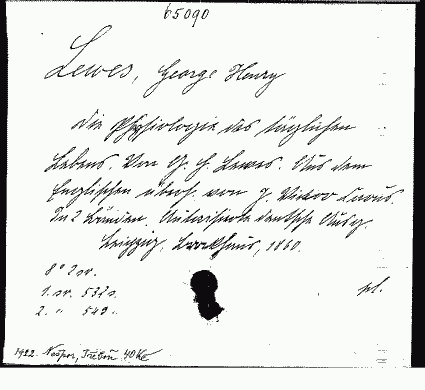 65090
Lewes, George Henry
Die Physiologie des täglichen
Lebens. Von G. H. Lewes. Aus dem
Englischen übers. von J. Victor Carus.
In 2 Bänden. Autorisirte deutsche Ausg.
Leipzig, Brockhaus, 1860.
8° 2 sv.
1. sv. 532 s.
2. " 549 "
1922. Nešpor, Třeboň 40 Kč